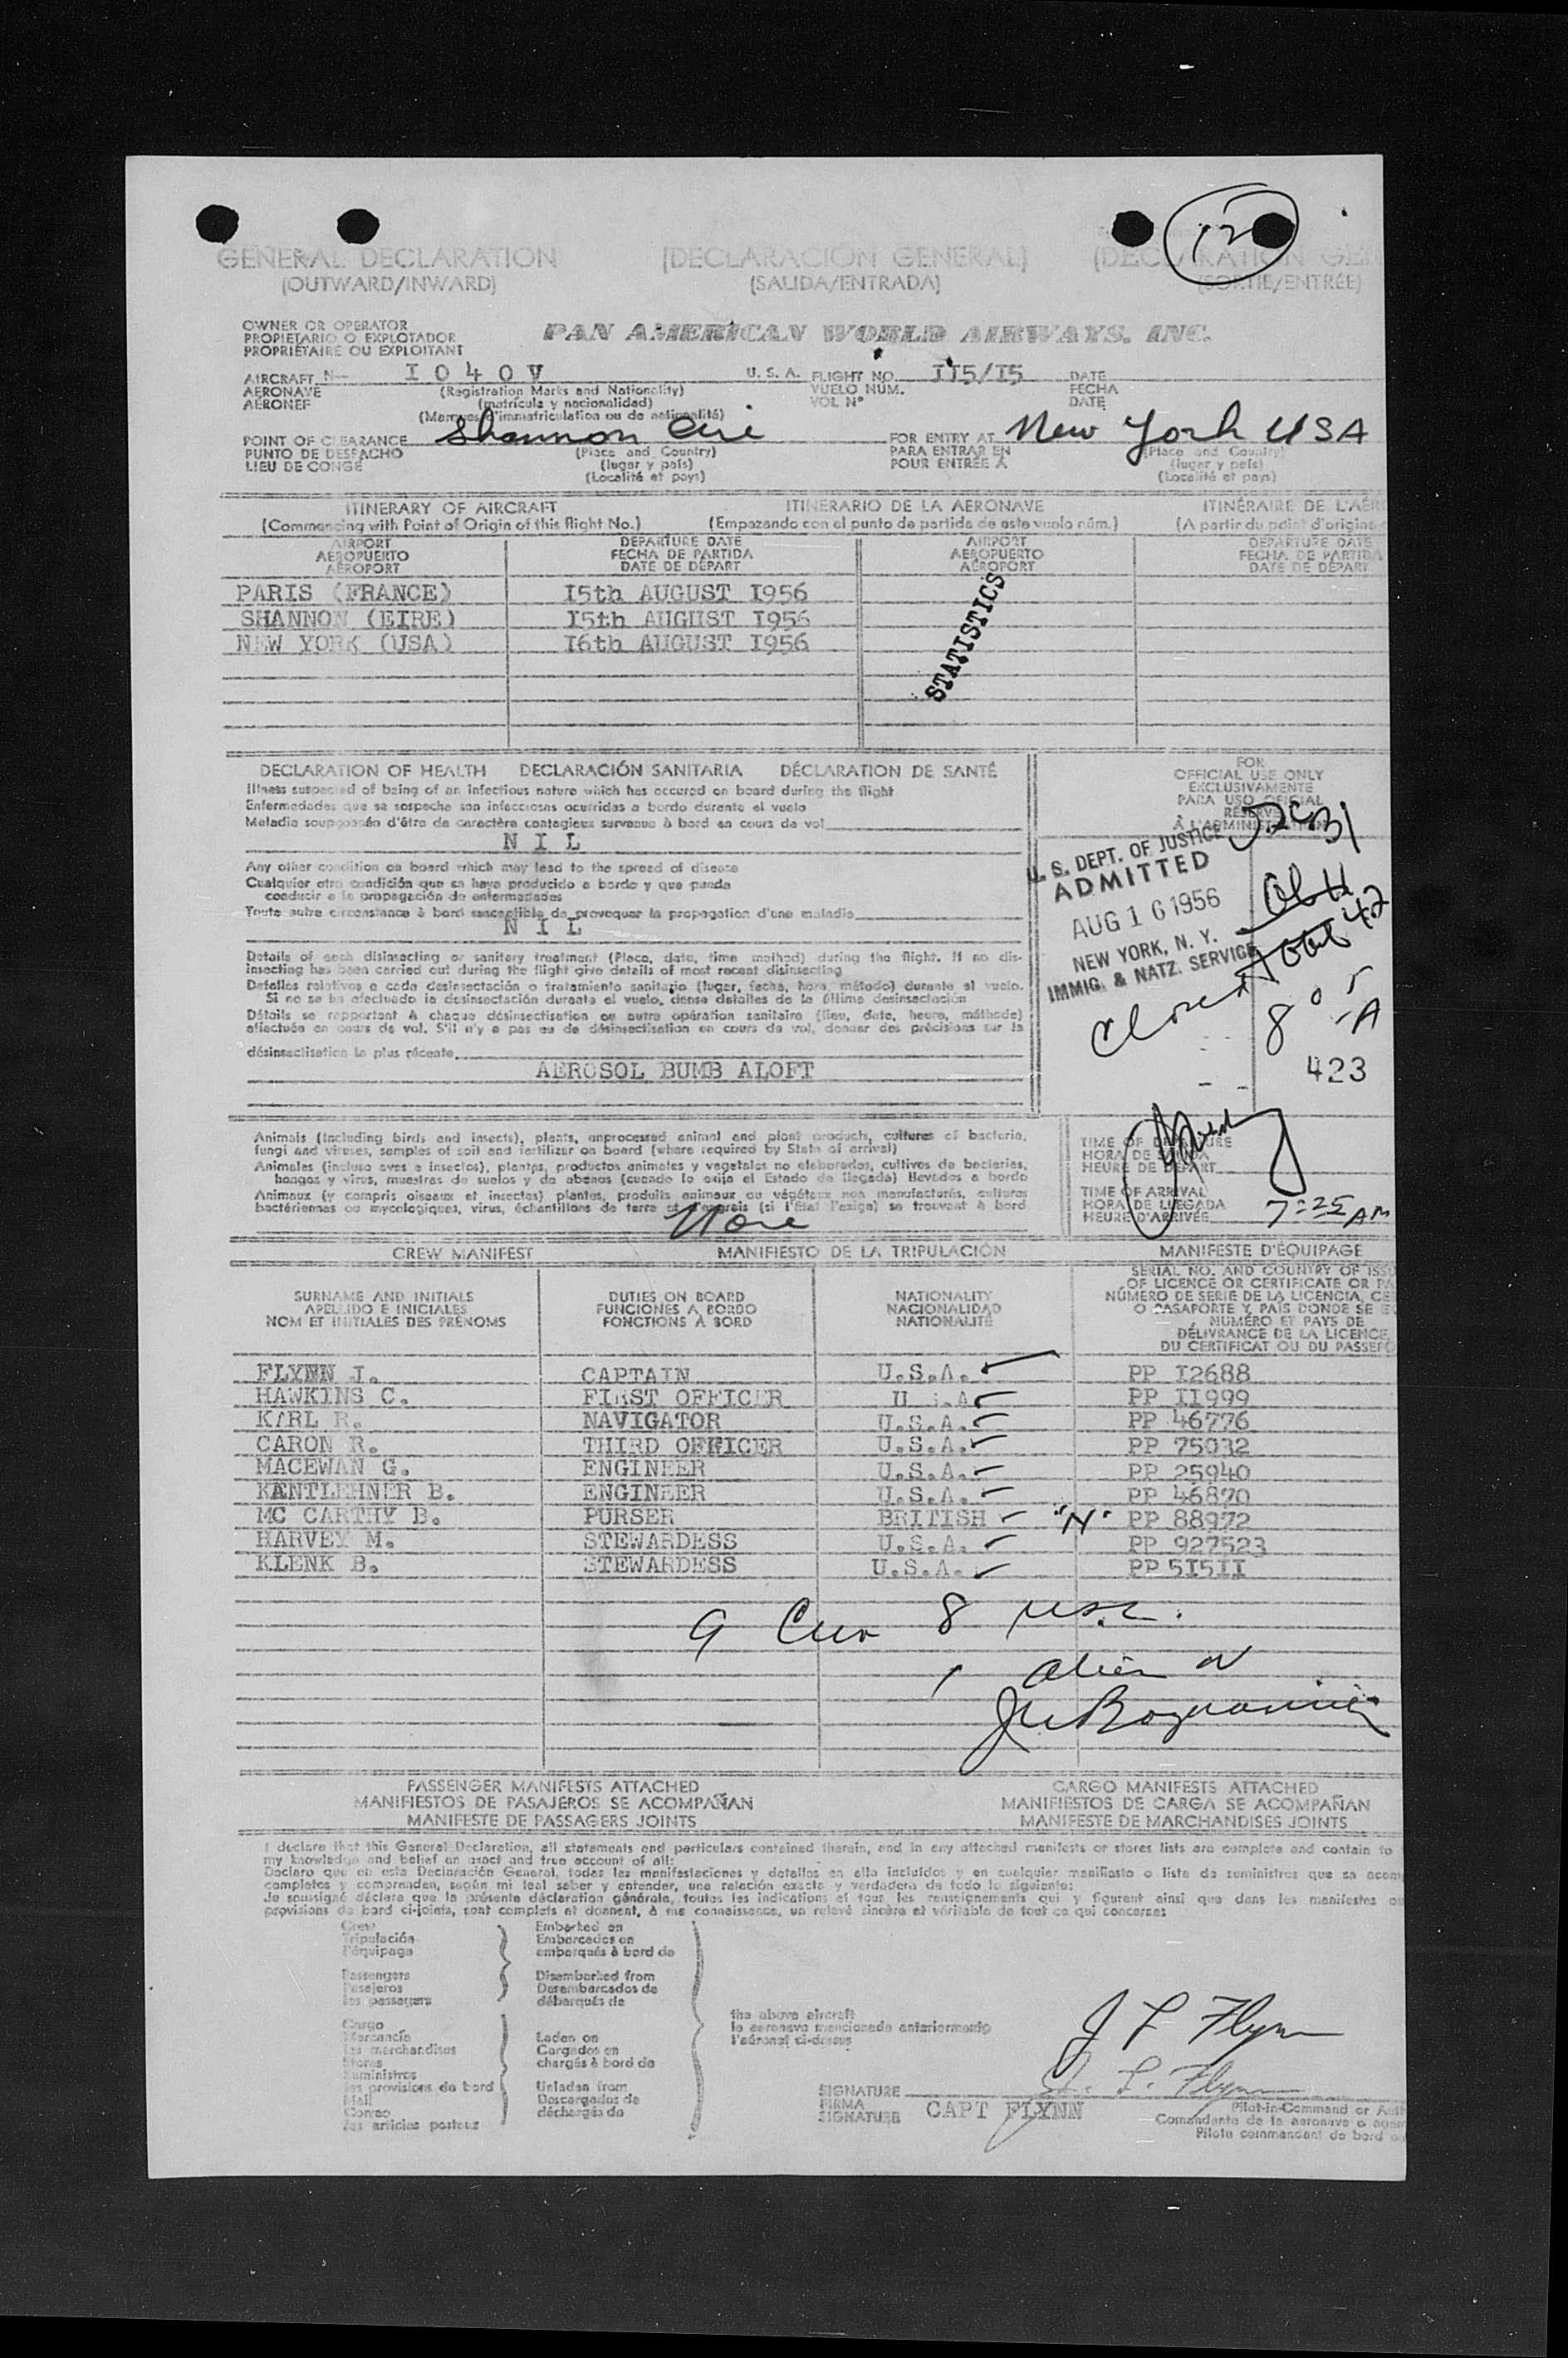 12
GENERAL DECLARATION
(OUTWARD/INWARD)
[DECLARACIÓN GENERAL]
(SALIDA/ENTRADA)
(DECLARATION GEN
(SORTIE/ENTRÉE)
OWNER OR OPERATOR
PROPIETARIO O EXPLOTADOR
PROPRIÉTAIRE OU EXPLOITANT
PAN AMERICAN WORLD AIRWAYS, INC.
AIRCRAFT N- I 0 4 0 V U. S. A. FLIGHT NO. II5/I5 DATE
AERONAVE (Registration Marks and Nationality) VUELO NUM. FECHA
AÉRONEF (matrícula y nacionalidad) VOL N° DATE
(Marques d'immatriculation ou de nationalité)
POINT OF CLEARANCE Shannon Eire FOR ENTRY AT New York USA
PUNTO DE DESPACHO (Place and Country) PARA ENTRAR EN (Place and Country)
LIEU DE CONGÉ (lugar y país) POUR ENTRÉE À (lugar y país)
(Localité et pays) (Localité et pays)
ITINERARY OF AIRCRAFT ITINERARIO DE LA AERONAVE ITINÉRAIRE DE L'AÉR
(Commencing with Point of Origin of this flight No.) (Empezando con el punto de partida de este vuelo núm.) (A partir du point d'origine
AIRPORT DEPARTURE DATE AIRPORT DEPARTURE DATE
AEROPUERTO FECHA DE PARTIDA AEROPUERTO FECHA DE PARTIDA
AÉROPORT DATE DE DÉPART AÉROPORT DATE DE DÉPART
PARIS (FRANCE) I5th AUGUST I956
SHANNON (EIRE) I5th AUGUST I956
NEW YORK (USA) I6th AUGUST I956
STATISTICS
DECLARATION OF HEALTH DECLARACIÓN SANITARIA DÉCLARATION DE SANTÉ
Illness suspected of being of an infectious nature which has occured on board during the flight
Enfermedades que se sospecha son infecciosas ocurridas a bordo durante el vuelo
Maladie soupçonnée d'être de caractère contagieux survenue à bord en cours de vol
N I L
Any other condition on board which may lead to the spread of disease
Cualquier otra condición que se haya producido a bordo y que pueda
conducir a la propagación de enfermedades
Toute autre circonstance à bord susceptible de provoquer la propagation d'une maladie
N I L
Details of each disinsecting or sanitary treatment (Place, date, time method) during the flight. If no dis-
insecting has been carried out during the flight give details of most recent disinsecting
Detalles relativos a cada desinsectación o tratamiento sanitario (lugar, fecha, hora, método) durante el vuelo.
Si no se ha efectuado la desinsectación durante el vuelo, dense detalles de la última desinsectación
Détails se rapportant à chaque désinsectisation ou autre opération sanitaire (lieu, date, heure, méthode)
effectuée en cours de vol. S'il n'y a pas eu de désinsectisation en cours de vol, donner des précisions sur la
désinsectisation la plus récente
AEROSOL BUMB ALOFT
FOR
OFFICIAL USE ONLY
EXCLUSIVAMENTE
PARA USO OFICIAL
RÉSERVÉ
À L'ADMINISTRATION
U. S. DEPT. OF JUSTICE
ADMITTED
AUG 1 6 1956
NEW YORK, N. Y.
IMMIG. & NATZ. SERVICE
8 05 A
423
Animals (including birds and insects), plants, unprocessed animal and plant products, cultures of bacteria,
fungi and viruses, samples of soil and fertilizer on board (where required by State of arrival)
Animales (incluso aves e insectos), plantas, productos animales y vegetales no elaborados, cultivos de bacterias,
hongos y virus, muestras de suelos y de abonos (cuando lo exija el Estado de llegada) llevados a bordo
Animaux (y compris oiseaux et insectes) plantes, produits animaux ou végétaux non manufacturés, cultures
bactériennes ou mycologiques, virus, échantillons de terre et d'engrais (si l'État l'exige) se trouvant à bord
None
TIME OF DEPARTURE
HORA DE SALIDA
HEURE DE DÉPART
TIME OF ARRIVAL
HORA DE LLEGADA
HEURE D'ARRIVÉE 7:25 AM
CREW MANIFEST MANIFIESTO DE LA TRIPULACIÓN MANIFESTE D'ÉQUIPAGE
SURNAME AND INITIALS DUTIES ON BOARD NATIONALITY SERIAL NO. AND COUNTRY OF ISSU
APELLIDO E INICIALES FUNCIONES A BORDO NACIONALIDAD OF LICENCE OR CERTIFICATE OR PA
NOM ET INITIALES DES PRÉNOMS FONCTIONS À BORD NATIONALITÉ NÚMERO DE SERIE DE LA LICENCIA, CE
O PASAPORTE Y PAÍS DONDE SE E
NUMÉRO ET PAYS DE
DÉLIVRANCE DE LA LICENCE,
DU CERTIFICAT OU DU PASSEPO
FLYNN J. CAPTAIN U.S.A. PP I2688
HAWKINS C. FIRST OFFICER U.S.A. PP II999
KARL R. NAVIGATOR U.S.A. PP 46776
CARON R. THIRD OFFICER U.S.A. PP 75032
MACEWAN G. ENGINEER U.S.A. PP 25940
KANTLEHNER B. ENGINEER U.S.A. PP 46870
MC CARTHY B. PURSER BRITISH "N" PP 88972
HARVEY M. STEWARDESS U.S.A. PP 927523
KLENK B. STEWARDESS U.S.A. PP 5I5II
9 Crew 8 usc.
1 alien
PASSENGER MANIFESTS ATTACHED CARGO MANIFESTS ATTACHED
MANIFIESTOS DE PASAJEROS SE ACOMPAÑAN MANIFIESTOS DE CARGA SE ACOMPAÑAN
MANIFESTE DE PASSAGERS JOINTS MANIFESTE DE MARCHANDISES JOINTS
I declare that this General Declaration, all statements and particulars contained therein, and in any attached manifests or stores lists are complete and contain to
my knowledge and belief an exact and true account of all:
Declaro que en esta Declaración General, todas las manifestaciones y detalles en ella incluidos y en cualquier manifiesto o lista de suministros que se acom
completos y comprenden, según mi leal saber y entender, una relación exacta y verdadera de todo lo siguiente:
Je soussigné déclare que la présente déclaration générale, toutes les indications et tous les renseignements qui y figurent ainsi que dans les manifestes o
provisions de bord ci-joints, sont complets et donnent, à ma connaissance, un relevé sincère et véritable de tout ce qui concerne:
Crew Embarked on
Tripulación Embarcados en
l'équipage embarqués à bord de
Passengers Disembarked from
Pasajeros Desembarcados de
les passagers débarqués de
the above aircraft
la aeronave mencionada anteriormente
l'aéronef ci-dessus
Cargo
Mercancía Laden on
les marchandises Cargados en
Stores chargés à bord de
Suministros
les provisions de bord Unladen from
Mail Descargados de
Correo déchargés de
les articles postaux
J F Flynn
SIGNATURE J. F. Flynn
FIRMA CAPT FLYNN Pilot-in-Command or Auth
SIGNATURE Comandante de la aeronave o agen
Pilote commandant de bord o